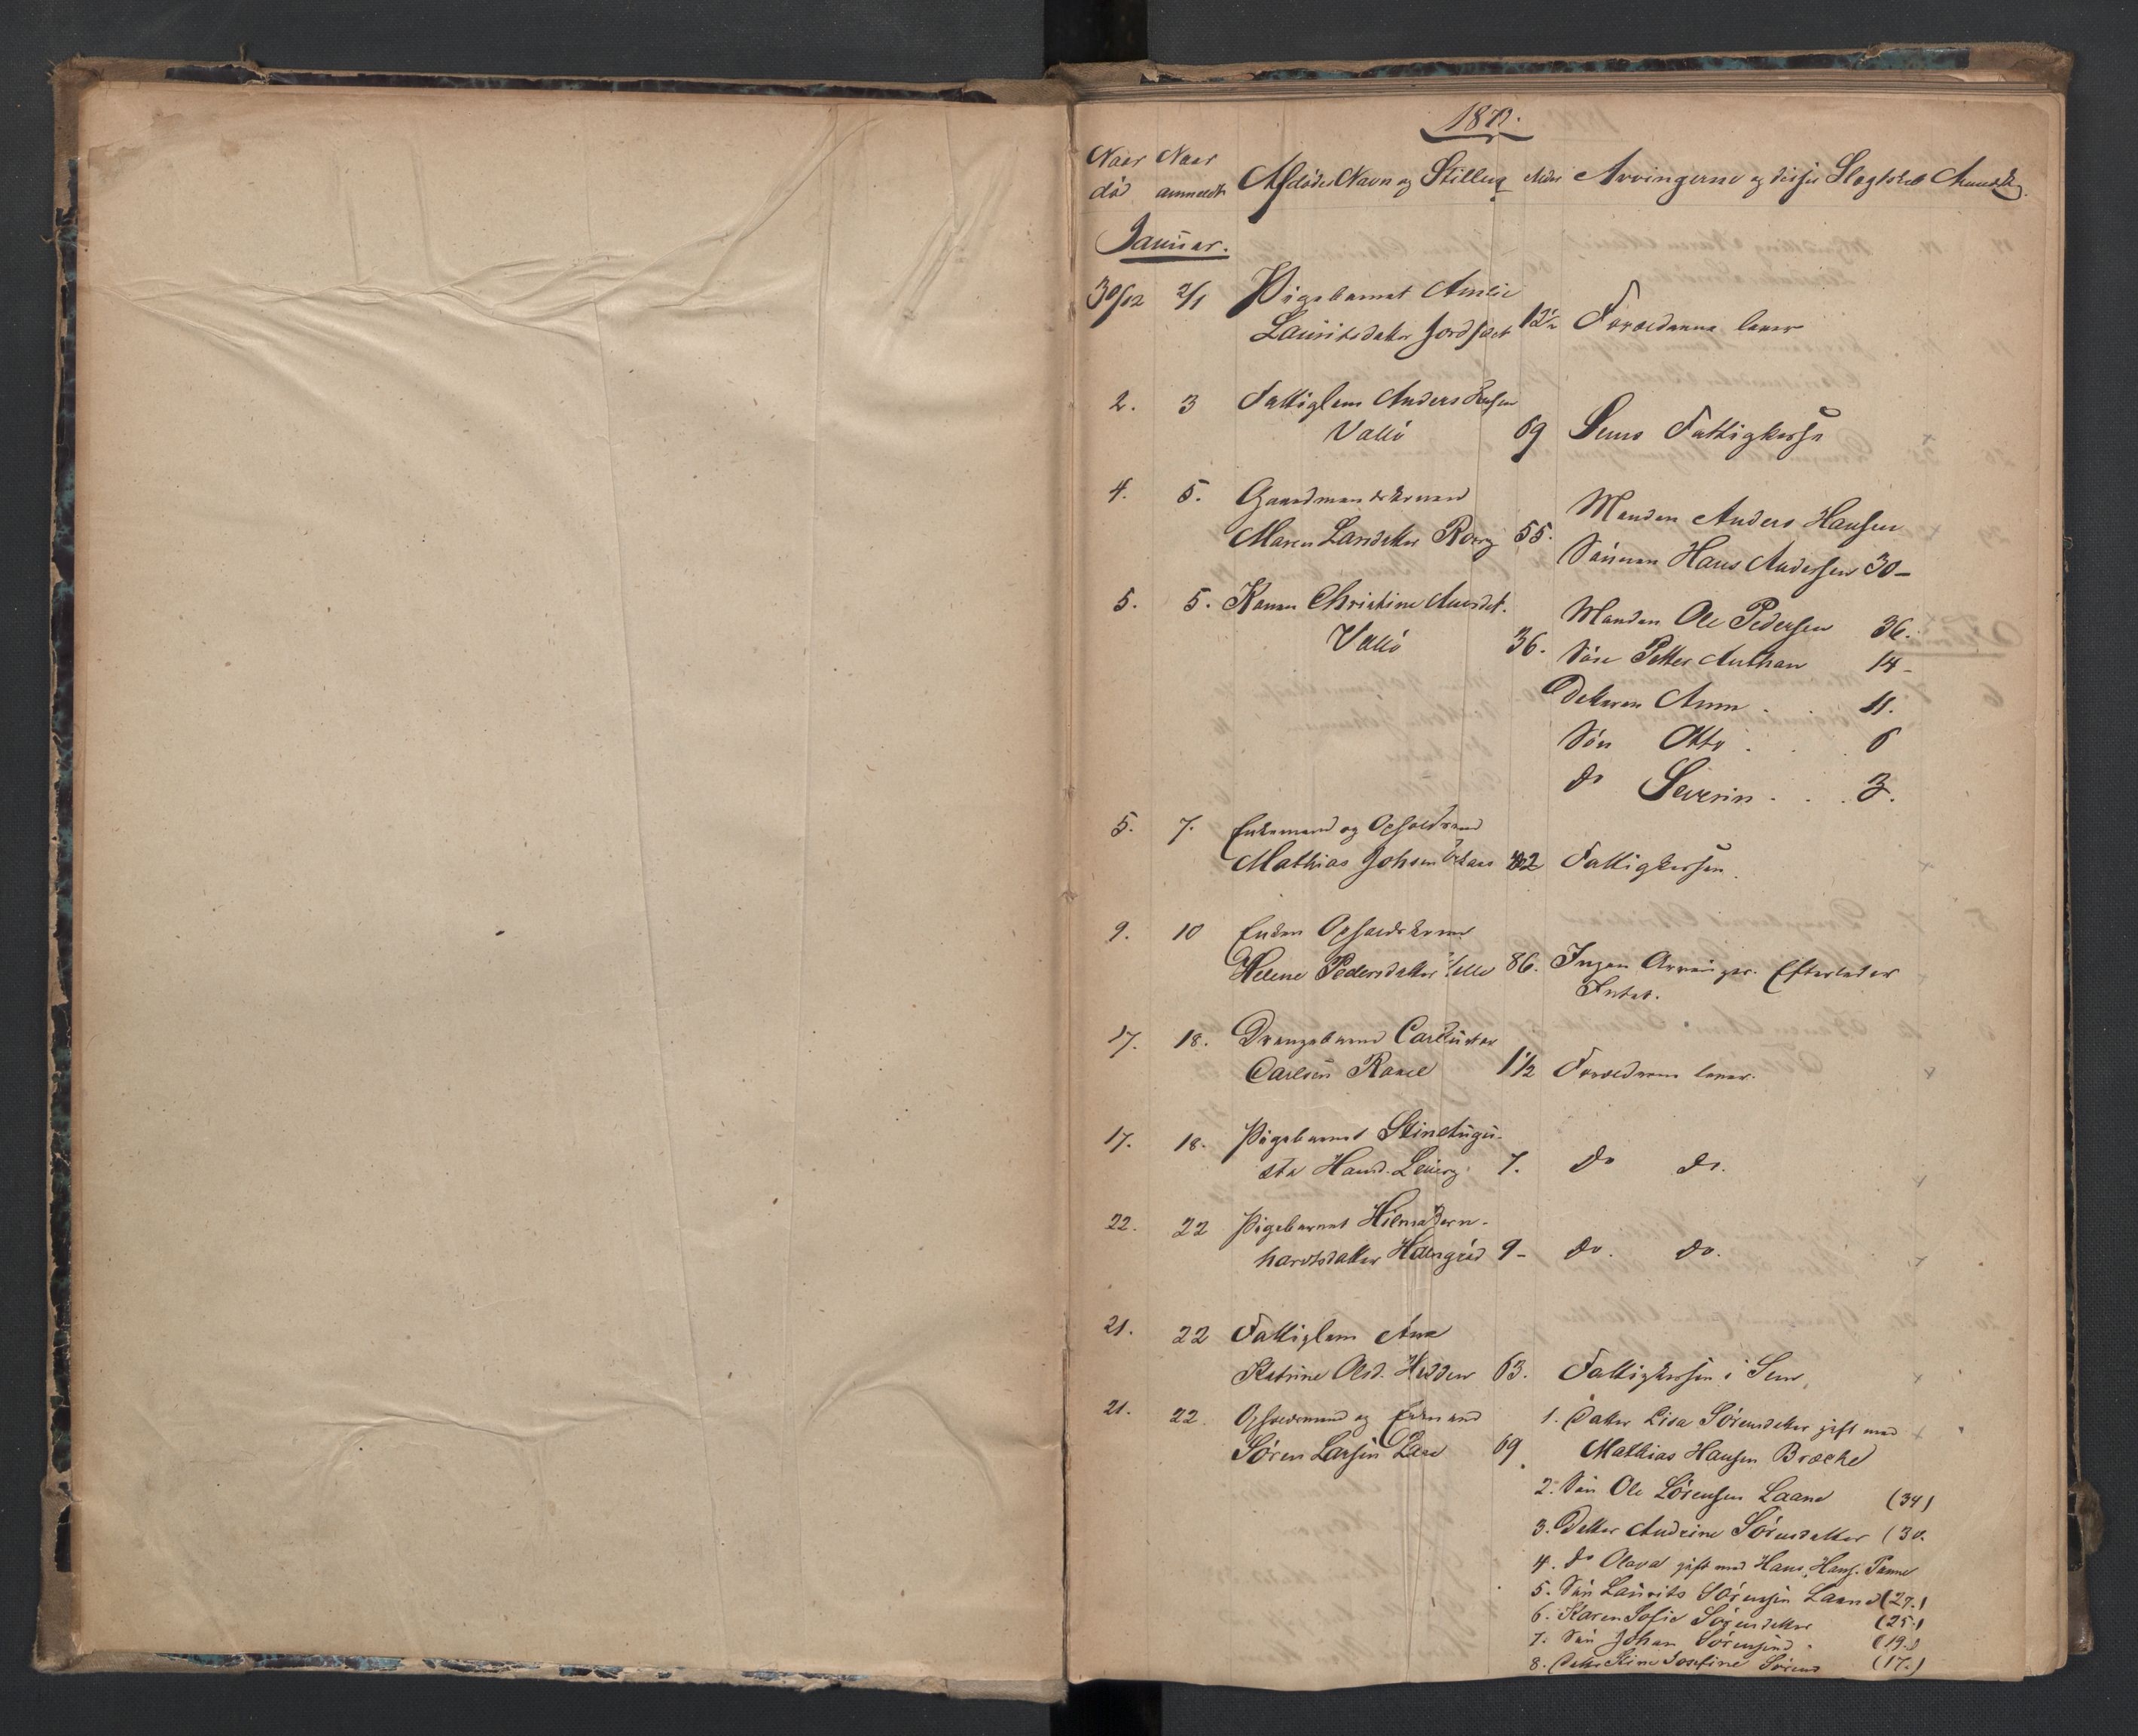 Naar Naar
død anmeldt Afdødes Navn og Stilling Alder Arvingerne og disses Slægtskab
Januar.
30/12 2/1 Pigebarnet Amlie
Lauritsdatter Jordfald 12½ Forældrene lever
2. 3 Fattiglem Anders
Vallö 69 Sems Fattigkasse
4. 5. Gaardmandskonen
Maren Larsdatter 55.
Manden Anders Hansen
Sönnen Hans Andersen 30–
5. 5. Konen Christine
Vallö 36.
Manden Ole Pedersen 36.
Sön Petter Anthon 14–
Datteren Anna . . 11.
Sön Otto . . . 6
do Severin . . . 3.
5. 7. Enkemand og
Mathias Johsen 82 Fattigkassen.
9. 10 Enken
Helene Pedersdatter 86. Ingen Arvinger. Efterlader
Intet.
17. 18. Drengebarnet Carl Gustav
Carlsen Raael 1½ Forældrene lever.
17. 18. Pigebarnet Stine Augu-
sta Hansd. 7. do do.
22. 22 Pigebarnet Hilma Bern-
hardsdatter 9– do. do.
21. 22 Fattiglem Ane
Katrine Olsd. 63. Fattigkassen i Sem,
21. 22. og Enkemand
Sören Larsen 69
1. Datter Lisa Sörensdatter gift med
Mathias Hansen Bræche
2. Sön Ole Sörensen Laane (34)
3. Datter Andrine Sörensdatter (30.
4. do Olava gift med Hans Hans.
5. Sön Laurits Sörensen Laane (27.)
6. Karen Sofie Sörensdatter (25.)
7. Sön Johan (19.)
8. Datter Stine Josefine Sörensd (17.)